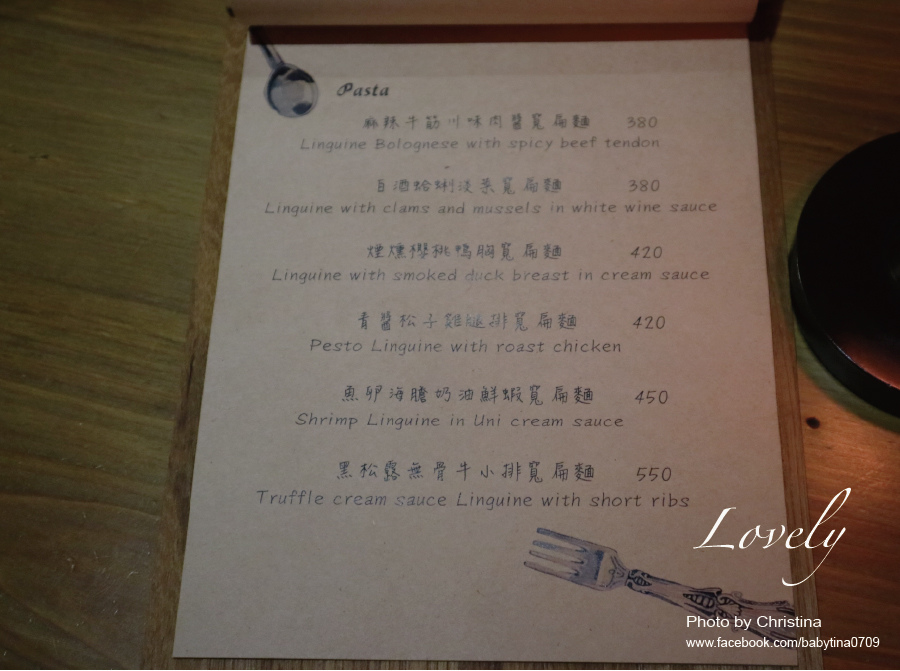 Pasta
麻辣牛筋川味肉醬寬扁麵 380
Linguine Bolognese with spicy beef tendon
白酒蛤蜊淡菜寬扁麵 380
Linguine with clams and mussels in white wine sauce
煙燻櫻桃鴨胸寬扁麵 420
Linguine with smoked duck breast in cream sauce
青醬松子雞腿排寬扁麵 420
Pesto Linguine with roast chicken
魚卵海膽奶油鮮蝦寬扁麵 450
Shrimp Linguine in Uni cream sauce
黑松露無骨牛小排寬扁麵 550
Truffle cream sauce Linguine with short ribs
Lovely
Photo by Christina
www.facebook.com/babytina0709